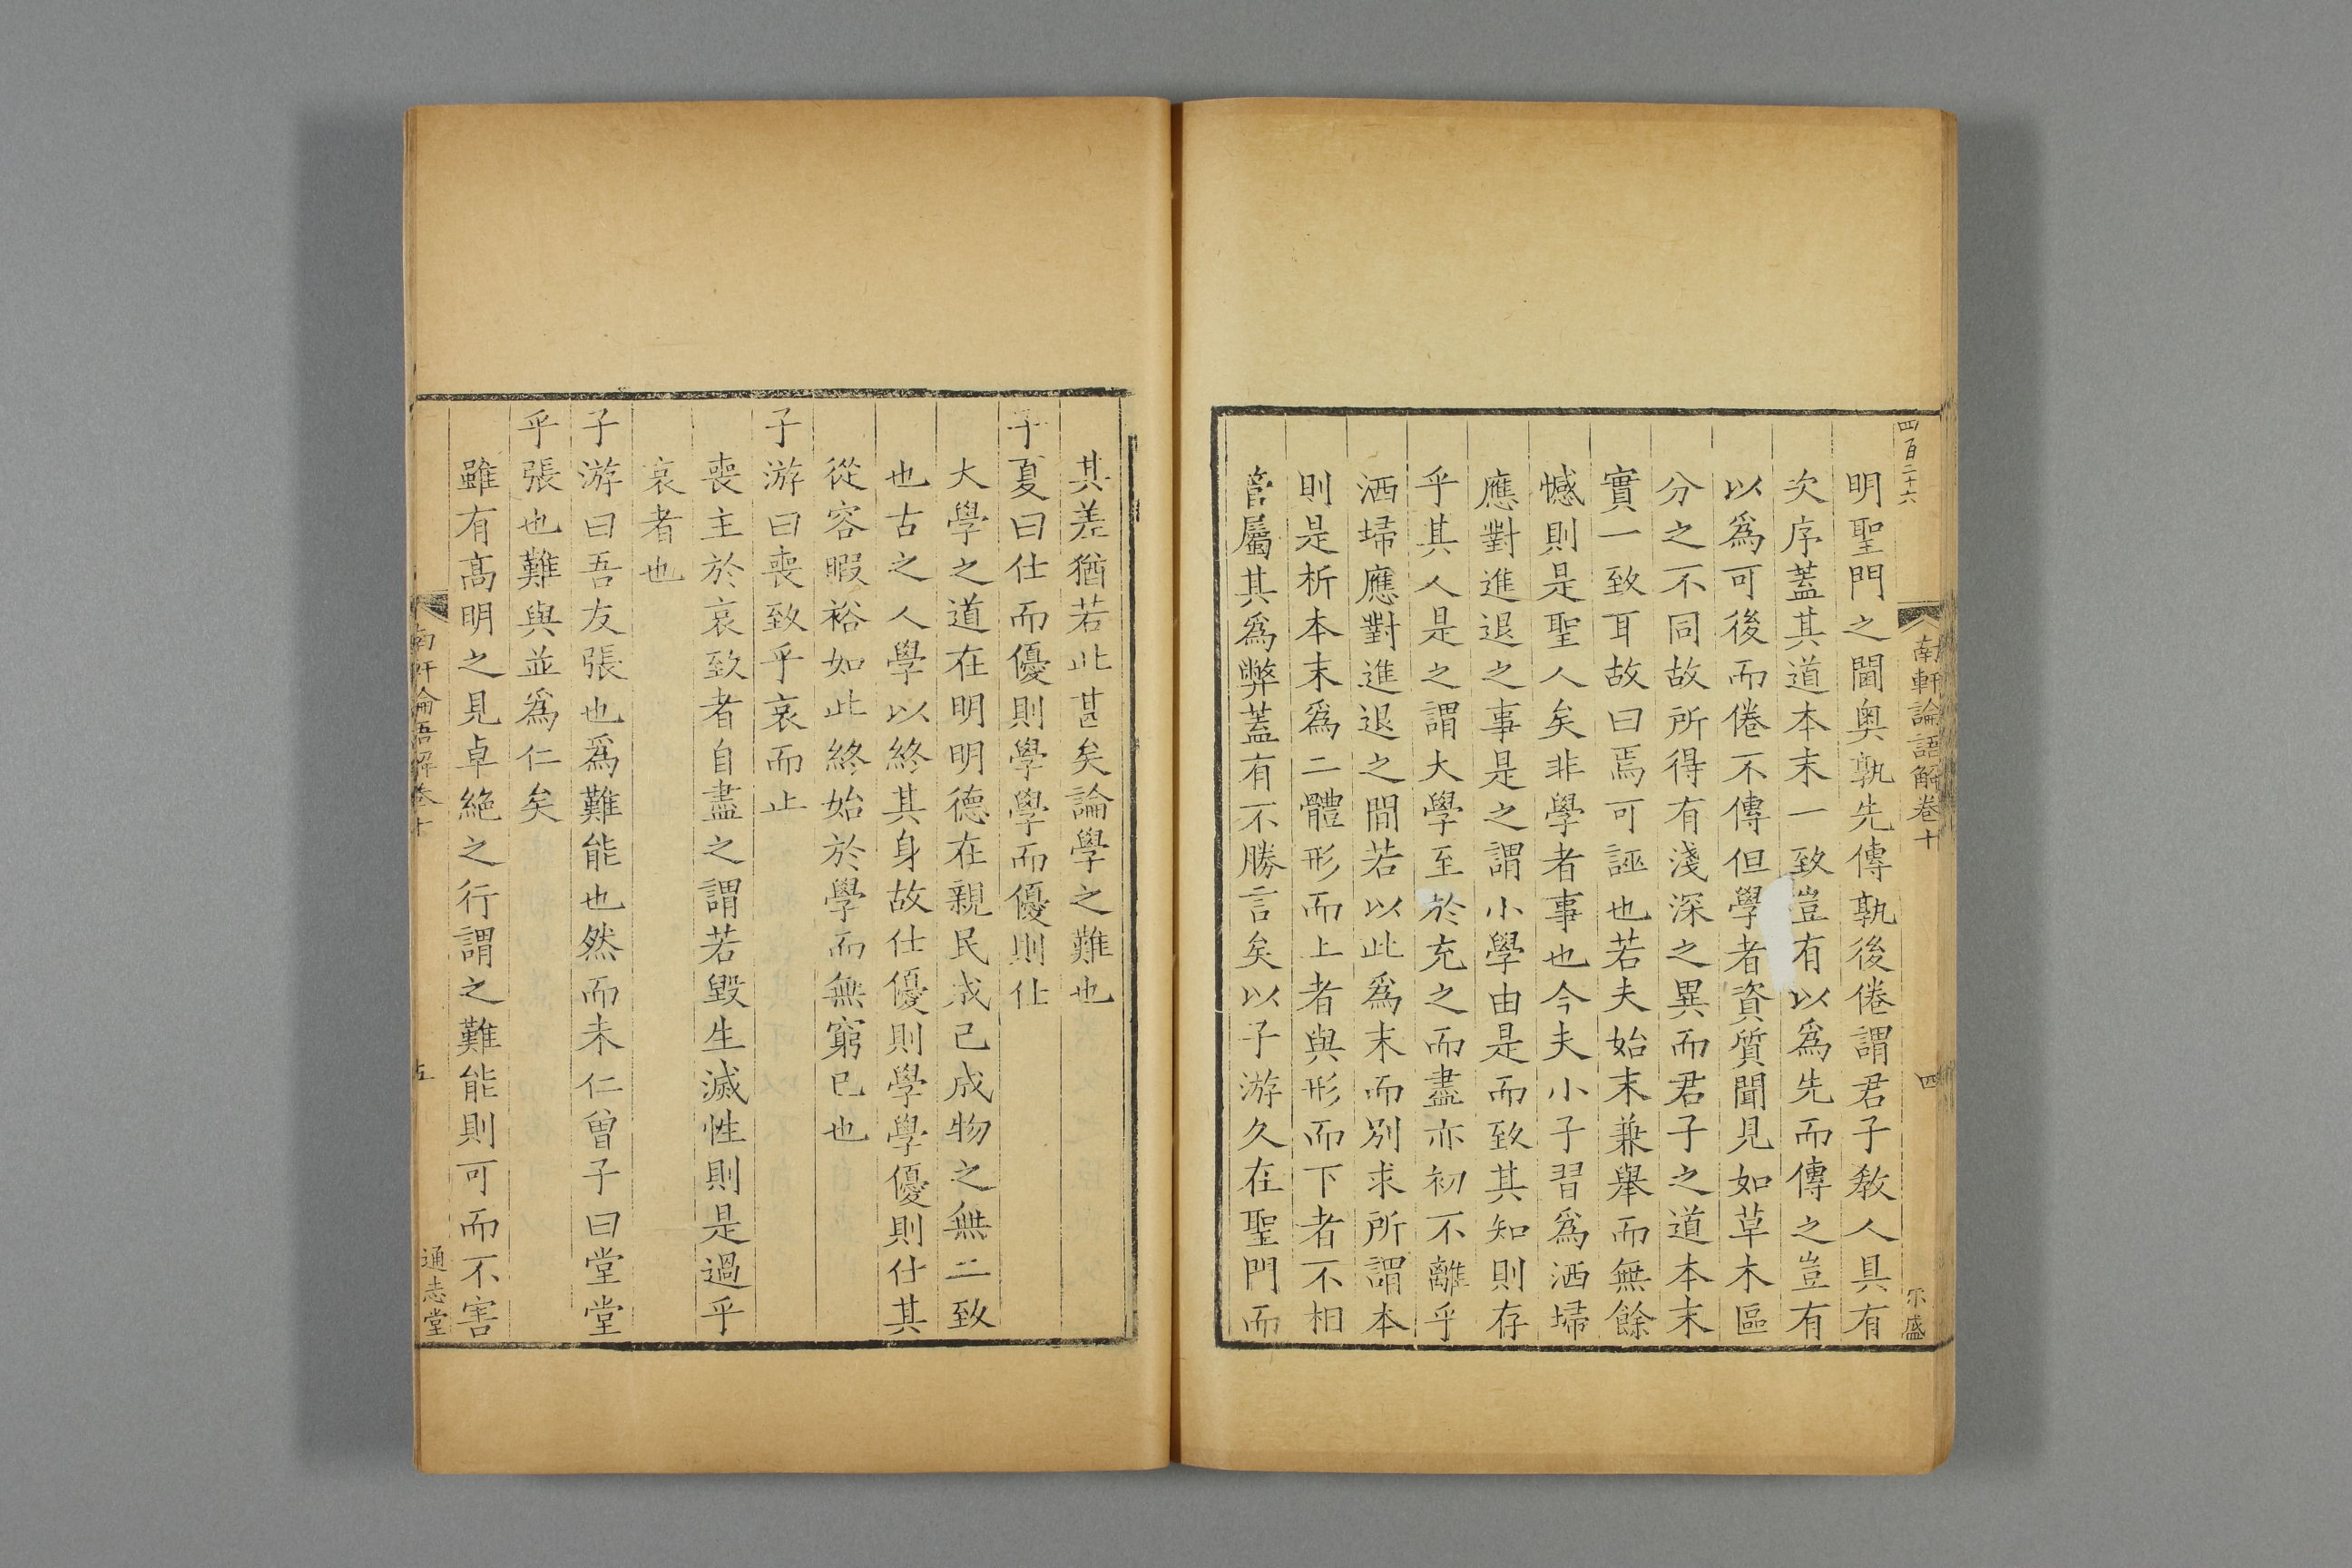 四百二十六
南軒論語解卷十
四
明聖門之閫奥孰先傳孰後倦謂君子敎人具有
次序蓋其道本末一致豈有以爲先而傳之豈有
以爲可後而倦不傳但學者資質聞見如草木區
分之不同故所得有淺深之異而君子之道本末
實一致耳故曰焉可誣也若夫始末兼舉而無餘
憾則是聖人矣非學者事也今夫小子習爲洒埽
應對進退之事是之謂小學由是而致其知則存
乎其人是之謂大學至於充之而盡亦初不離乎
洒埽應對進退之間若以此爲末而别求所謂本
則是析本末爲二體形而上者與形而下者不相
管屬其爲弊蓋有不勝言矣以子游久在聖門而
其差猶若此甚矣論學之難也
子夏曰仕而優則學學而優則仕
大學之道在明明德在親民成己成物之無二致
也古之人學以終其身故仕優則學學優則仕其
從容暇裕如此終始於學而無窮已也
子游曰喪致乎哀而止
喪主於哀致者自盡之謂若毀生滅性則是過乎
哀者也
子游曰吾友張也爲難能也然而未仁曾子曰堂堂
乎張也難與並爲仁矣
雖有高明之見卓絶之行謂之難能則可而不害
南軒論語解卷十
五
通志堂